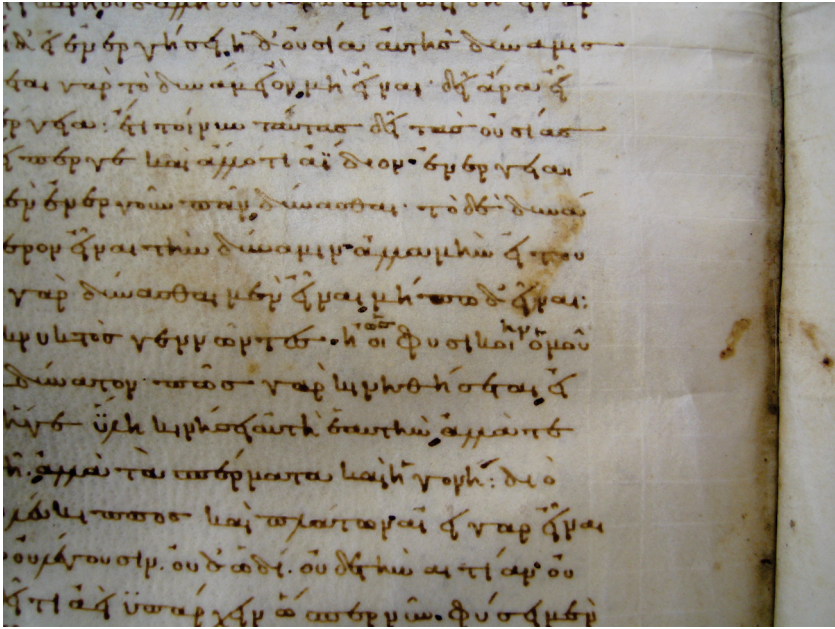 εἰ ἐνεργήσει ἡ δ' οὐσία αὐτῆς δύναμις
εται γὰρ τὸ δυνάμει ὂν μὴ εἶναι· δεῖ ἄρα εἶ
έργεια: ἔτι τοίνυν ταύτας δεῖ τὰς οὐσίας
εἴπερ γε καὶ ἄλλο τι ἀΐδιον· ἐνέργεια
ὲν ἐνεργοῦν πᾶν δύνασθαι· τὸ δὲ δυνά
ερον εἶναι τὴν δύναμιν· ἀλλὰ μὴν εἰ του
γὰρ δύνασθαι μὲν εἶναι μήπω δ' εἶναι:
κ νυκτὸς γεννῶντες· ἢ ὡς οἱ φυσικοὶ ἦν ὁμοῦ
δύνατον· πῶς γὰρ κινηθήσεται εἰ
ἥγε ὕλη κινήσει αὐτὴ ἑαυτὴν ἀλλὰ τε
ῆ· ἀλλὰ τὰ σπέρματα καὶ ἡ γονή: διὸ
λεύκιππος καὶ πλάτων ἀεὶ γὰρ εἶναι
οὐ λέγουσιν· οὐδ' ὡδί· οὐδὲ τὴν αἰτίαν· οὐ
εῖ τι ἀεὶ ὑπάρχειν ὥσπερ νῦν· φύσει μὲν